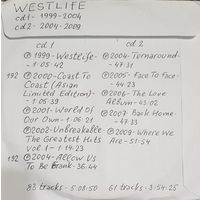 WESTLIFE
cd1 - 1999-2004
cd2 - 2004-2009
cd 1
℗ 1999-Westlife
- 1-05-42
192 ℗ 2000-Coast To
Coast (Asian
Limited Edition)-
1-05-39
℗ 2001-World Of
Our Own - 1-06-21
℗ 2002-Unbreakable-
The Greatest Hits
Vol 1 - 1-14-23
192 ℗ 2004-Allow Us
To Be Frank-36-44
83 tracks - 5-08-50
cd 2
℗ 2004-Turnaround-
- 47-31
℗ 2005-Face To Face-
- 44-23
℗ 2006-The Love
Album - 43-02
℗ 2007-Back Home-
- 47-33
℗ 2009-Where We
Are - 51-54
61 tracks - 3-54-25